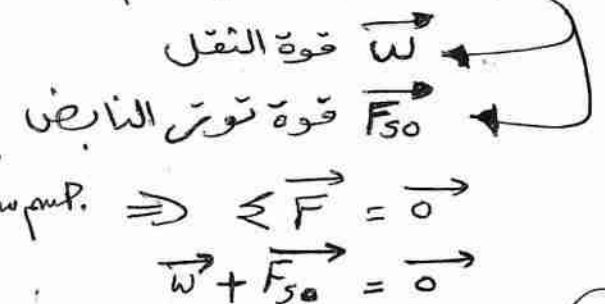 $\vec{W}$ قوة الثقل
$\vec{F_{S0}}$ قوة توتر النابض
⇐ $\Sigma \vec{F} = \vec{0}$
$\vec{W} + \vec{F_{S0}} = \vec{0}$